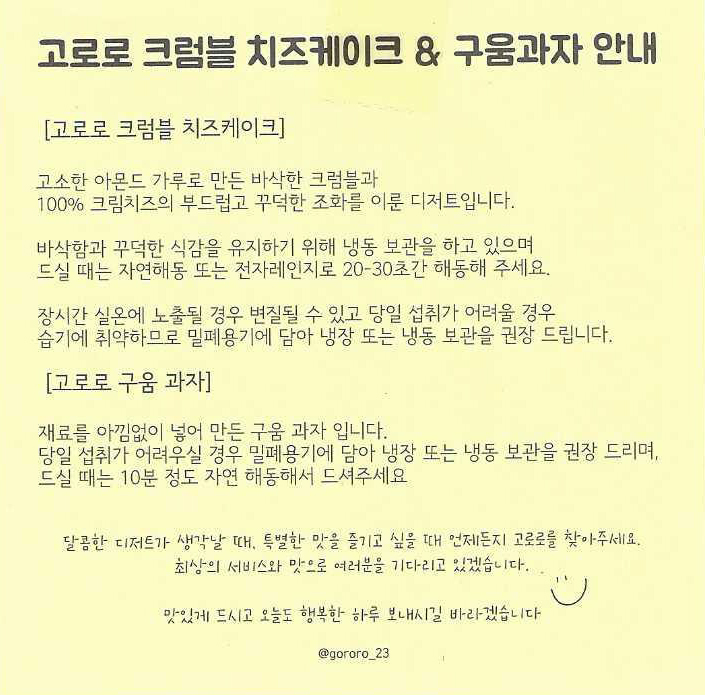 고로로 크럼블 치즈케이크 & 구움과자 안내
[고로로 크럼블 치즈케이크]
고소한 아몬드 가루로 만든 바삭한 크럼블과
100% 크림치즈의 부드럽고 꾸덕한 조화를 이룬 디저트입니다.
바삭함과 꾸덕한 식감을 유지하기 위해 냉동 보관을 하고 있으며
드실 때는 자연해동 또는 전자레인지로 20-30초간 해동해 주세요.
장시간 실온에 노출될 경우 변질될 수 있고 당일 섭취가 어려울 경우
습기에 취약하므로 밀폐용기에 담아 냉장 또는 냉동 보관을 권장 드립니다.
[고로로 구움 과자]
재료를 아낌없이 넣어 만든 구움 과자 입니다.
당일 섭취가 어려우실 경우 밀폐용기에 담아 냉장 또는 냉동 보관을 권장 드리며,
드실 때는 10분 정도 자연 해동해서 드셔주세요
달콤한 디저트가 생각날 때, 특별한 맛을 즐기고 싶을 때 언제든지 고로로를 찾아주세요.
최상의 서비스와 맛으로 여러분을 기다리고 있겠습니다.
맛있게 드시고 오늘도 행복한 하루 보내시길 바라겠습니다
@gororo_23